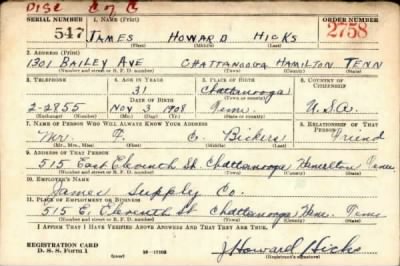 DISC C of C
SERIAL NUMBER 1. NAME (Print) ORDER NUMBER
547 JAMES HOWARD HICKS 2758
(First) (Middle) (Last)
2. ADDRESS (Print)
1301 BAILEY AVE CHATTANOOGA HAMILTON TENN
(Number and street or R. F. D. number) (Town) (County) (State)
3. TELEPHONE 4. AGE IN YEARS 5. PLACE OF BIRTH 6. COUNTRY OF CITIZENSHIP
31 Chattanooga
DATE OF BIRTH (Town or county)
2-2855 Nov 3 1908 Tenn U.S.A.
(Exchange) (Number) (Mo.) (Day) (Yr.) (State or country)
7. NAME OF PERSON WHO WILL ALWAYS KNOW YOUR ADDRESS 8. RELATIONSHIP OF THAT PERSON
Mr. C. Bickers Friend
(Mr., Mrs., Miss) (First) (Middle) (Last)
9. ADDRESS OF THAT PERSON
515 East Eleventh St. Chattanooga Hamilton Tenn
(Number and street or R. F. D. number) (Town) (County) (State)
10. EMPLOYER'S NAME
James Supply Co.
11. PLACE OF EMPLOYMENT OR BUSINESS
515 E. Eleventh St Chattanooga Ham. Tenn
(Number and street or R. F. D. number) (Town) (County) (State)
I AFFIRM THAT I HAVE VERIFIED ABOVE ANSWERS AND THAT THEY ARE TRUE.
REGISTRATION CARD
D. S. S. Form 1 J Howard Hicks
(Registrant's signature)